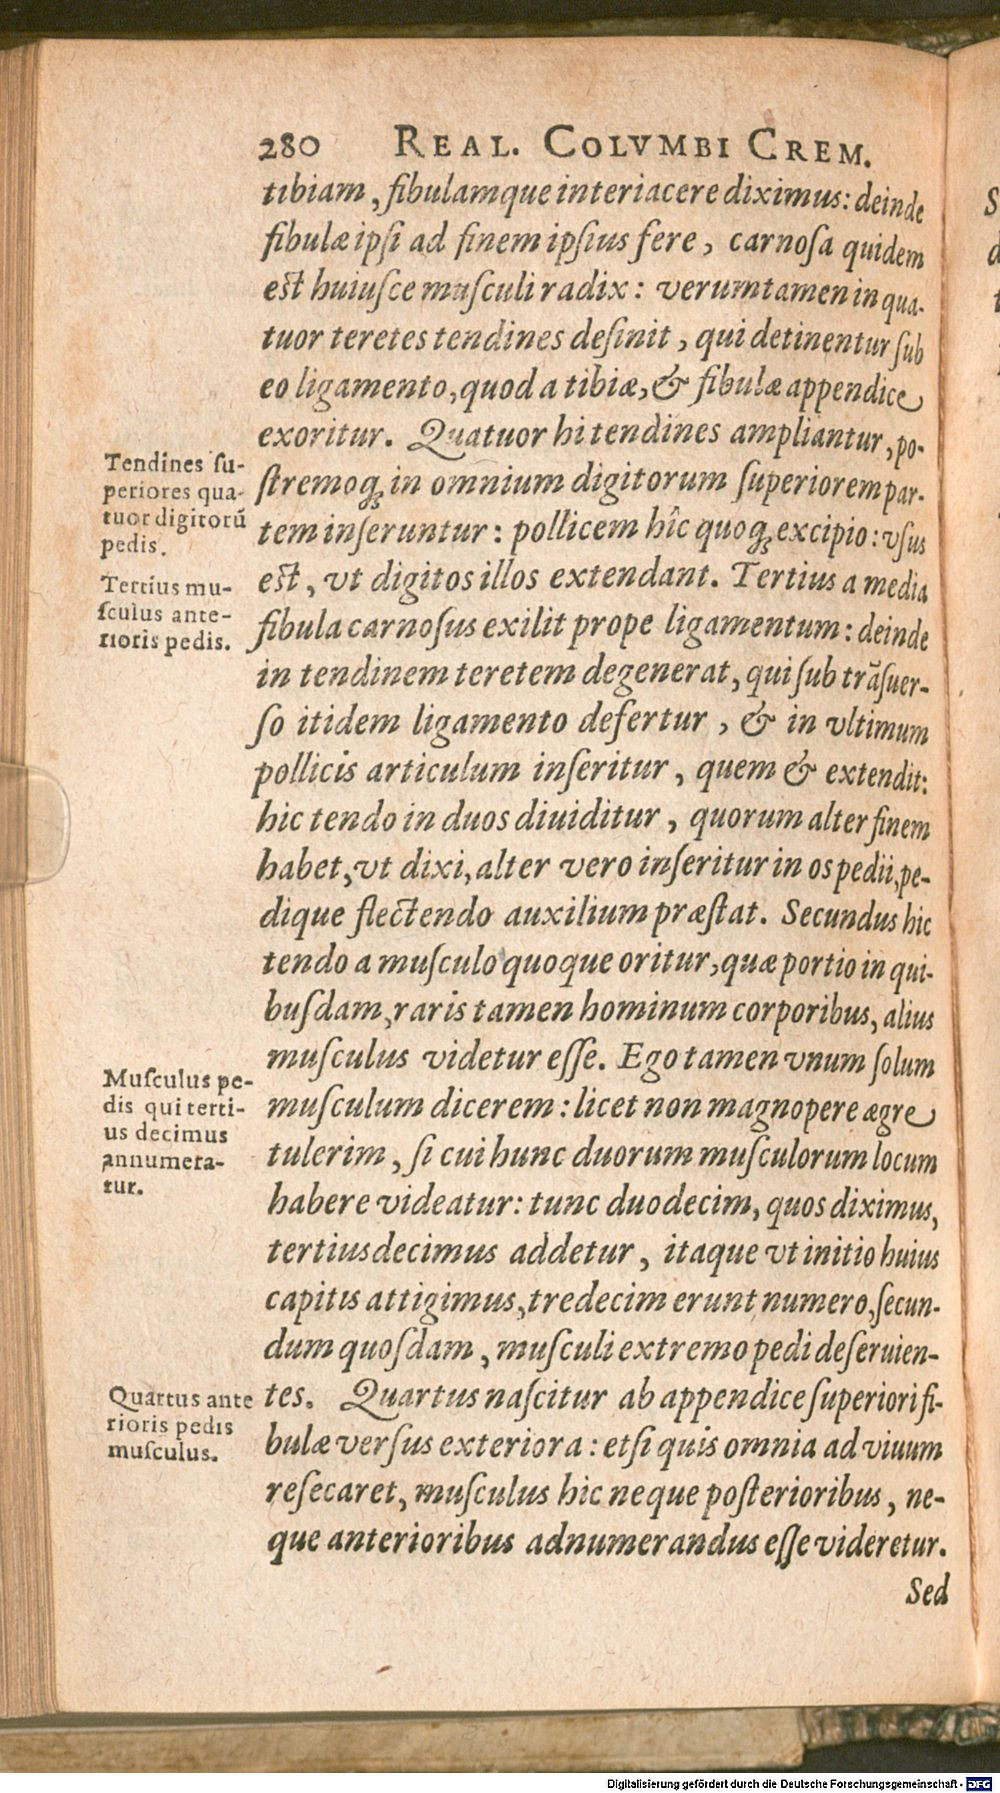 280 REAL. COLVMBI CREM.
tibiam, fibulamque interiacere diximus: deinde
fibulæ ipsi ad finem ipsius fere, carnosa quidem
est huiusce musculi radix: verumtamen in qua-
tuor teretes tendines desinit, qui detinentur sub
eo ligamento, quod a tibiæ, & fibulæ appendice
exoritur. Quatuor hi tendines ampliantur, po-
stremoq́; in omnium digitorum superiorem par-
tem inseruntur: pollicem hîc quoq́; excipio: vsus
est, vt digitos illos extendant. Tertius a media
fibula carnosus exilit prope ligamentum: deinde
in tendinem teretem degenerat, qui sub trãsuer-
so itidem ligamento defertur, & in vltimum
pollicis articulum inseritur, quem & extendit:
hic tendo in duos diuiditur, quorum alter finem
habet, vt dixi, alter vero inseritur in os pedii, pe-
dique flectendo auxilium præstat. Secundus hic
tendo a musculo quoque oritur, quæ portio in qui-
busdam, raris tamen hominum corporibus, alius
musculus videtur esse. Ego tamen vnum solum
musculum dicerem: licet non magnopere ægre
tulerim, si cui hunc duorum musculorum locum
habere videatur: tunc duodecim, quos diximus,
tertiusdecimus addetur, itaque vt initio huius
capitis attigimus, tredecim erunt numero, secun-
dum quosdam, musculi extremo pedi deseruien-
tes. Quartus nascitur ab appendice superiori fi-
bulæ versus exteriora: etsi quis omnia ad viuum
resecaret, musculus hic neque posterioribus, ne-
que anterioribus adnumerandus esse videretur.
Sed
Tendines su-
periores qua-
tuor digitorũ
pedis.
Tertius mu-
sculus ante-
rioris pedis.
Musculus pe-
dis qui terti-
us decimus
annumera-
tur.
Quartus ante
rioris pedis
musculus.
Digitalisierung gefördert durch die Deutsche Forschungsgemeinschaft - DFG